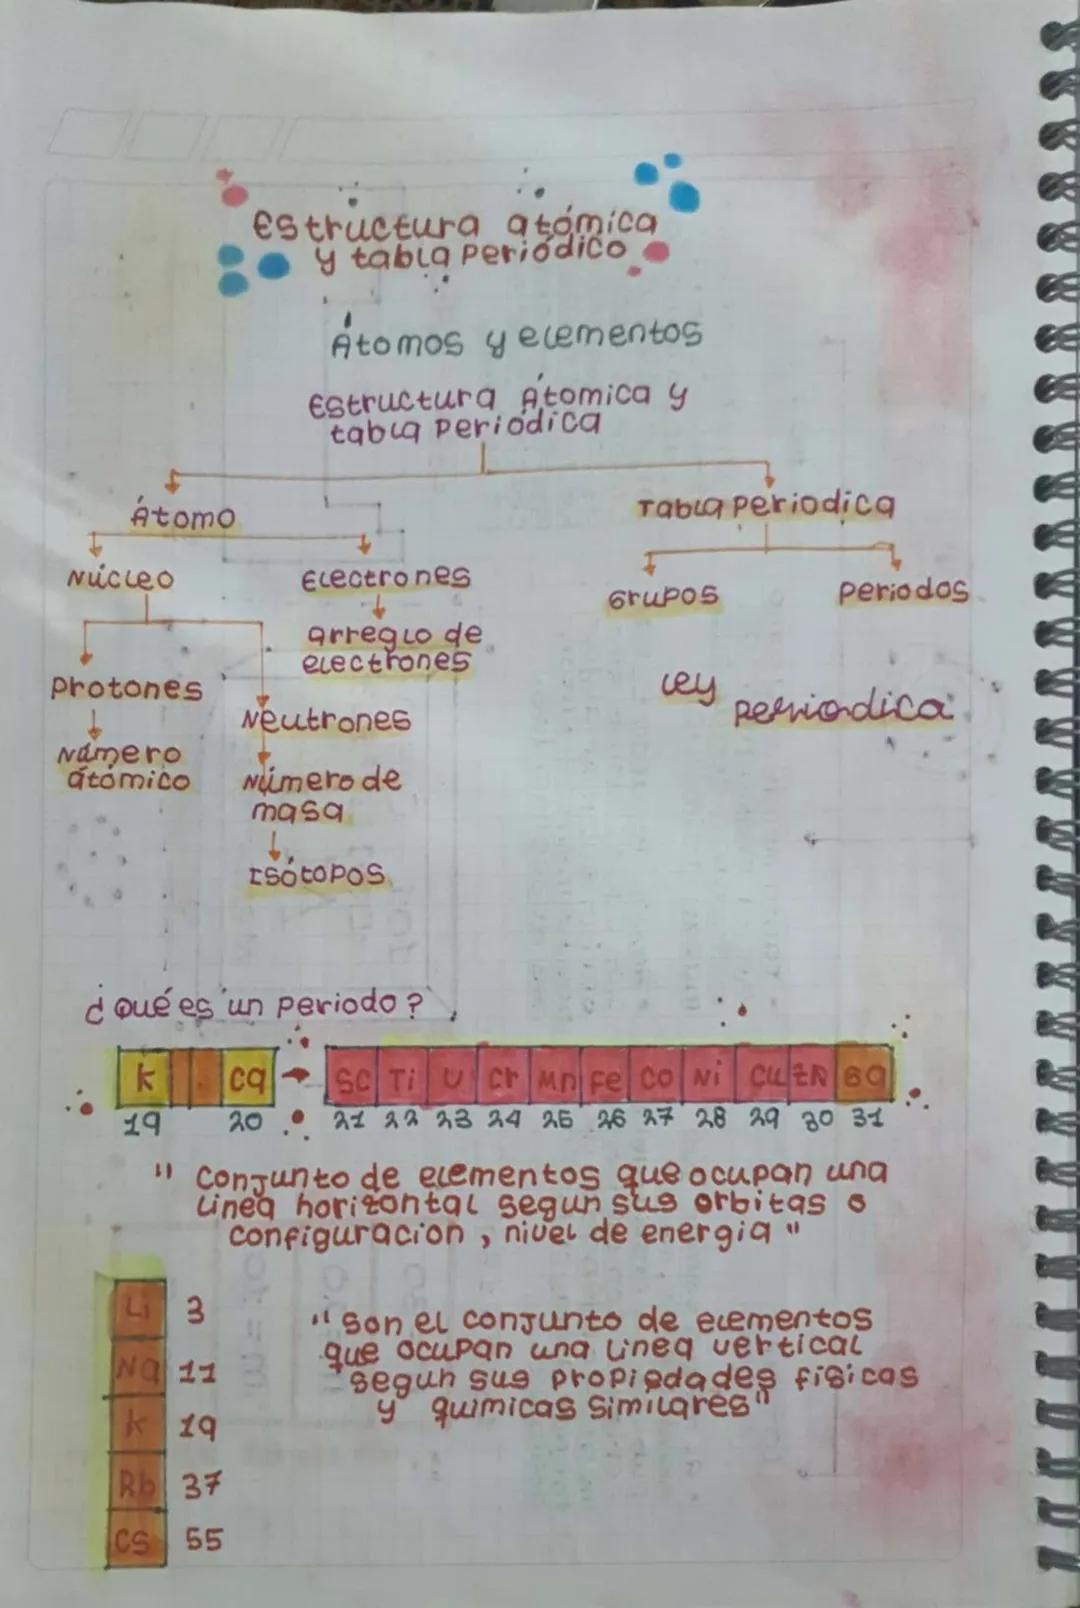 Estructura atómica
y tabla Periódico
Átomos y elementos
Estructura Átomica y
tabla Periódica
Átomo
Tabla Periodica
Núcleo
Electrones
Grupos
Periodos
arreglo de
electrones
Protones
Neutrones
Ley
periodica
Número
átómico
Número de
masa
Isótopos
¿Qué es un Periodo?
K Ca Sc Ti U Cr Mn Fe Co Ni Cu Zn Ga
19 20 21 22 23 24 25 26 27 28 29 30 31
" Conjunto de elementos que ocupan una
linea horizontal segun sus orbitas o
configuracion, nivel de energia "
Li 3
Na 11
K 19
Rb 37
Cs 55
" Son el conjunto de elementos
que ocupan una linea vertical
segun sus propiedades fisicas
y quimicas similares"